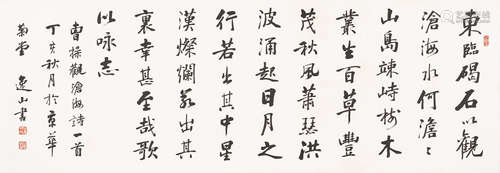 東臨碣石以觀
滄海水何澹〻
山島竦峙樹木
叢生百草豐
茂秋風蕭瑟洪
波涌起日月之
行若出其中星
漢燦爛若出其
裏幸甚至哉歌
以咏志
曹操觀滄海詩一首
丁亥秋月於京華
菊堂 逸山書